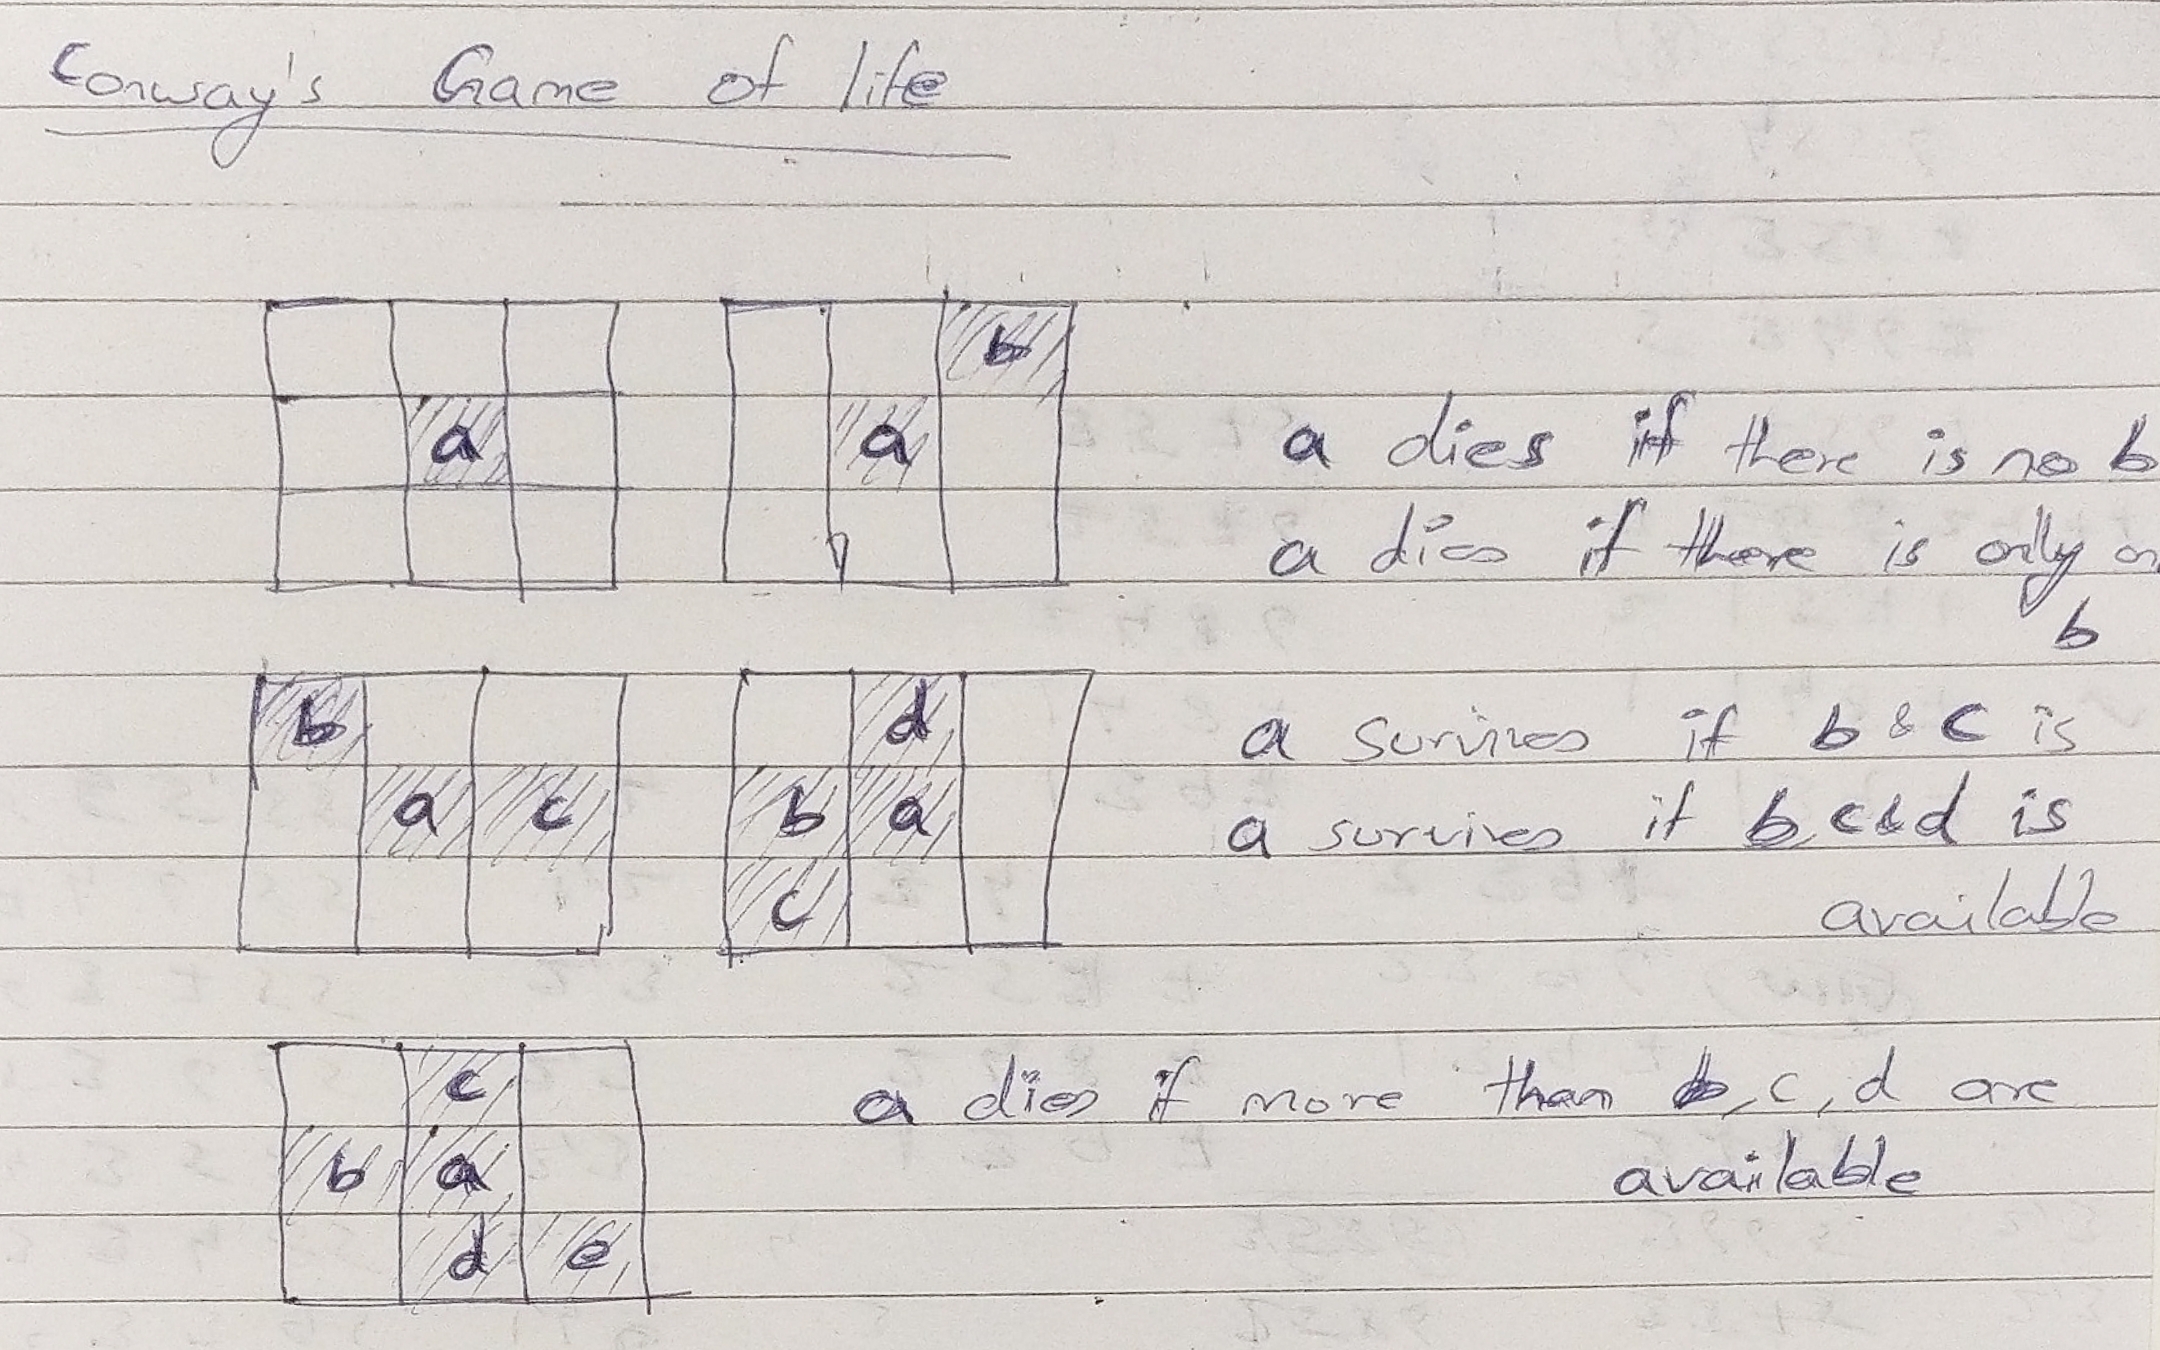 Conway's Game of life
a
b
a
a dies if there is no b
a dies if there is only
b
b
a c
d
b a
c
a survives if b & c is
a survives if b, c & d is
available
c
b a
d e
a dies if more than b, c, d are
available